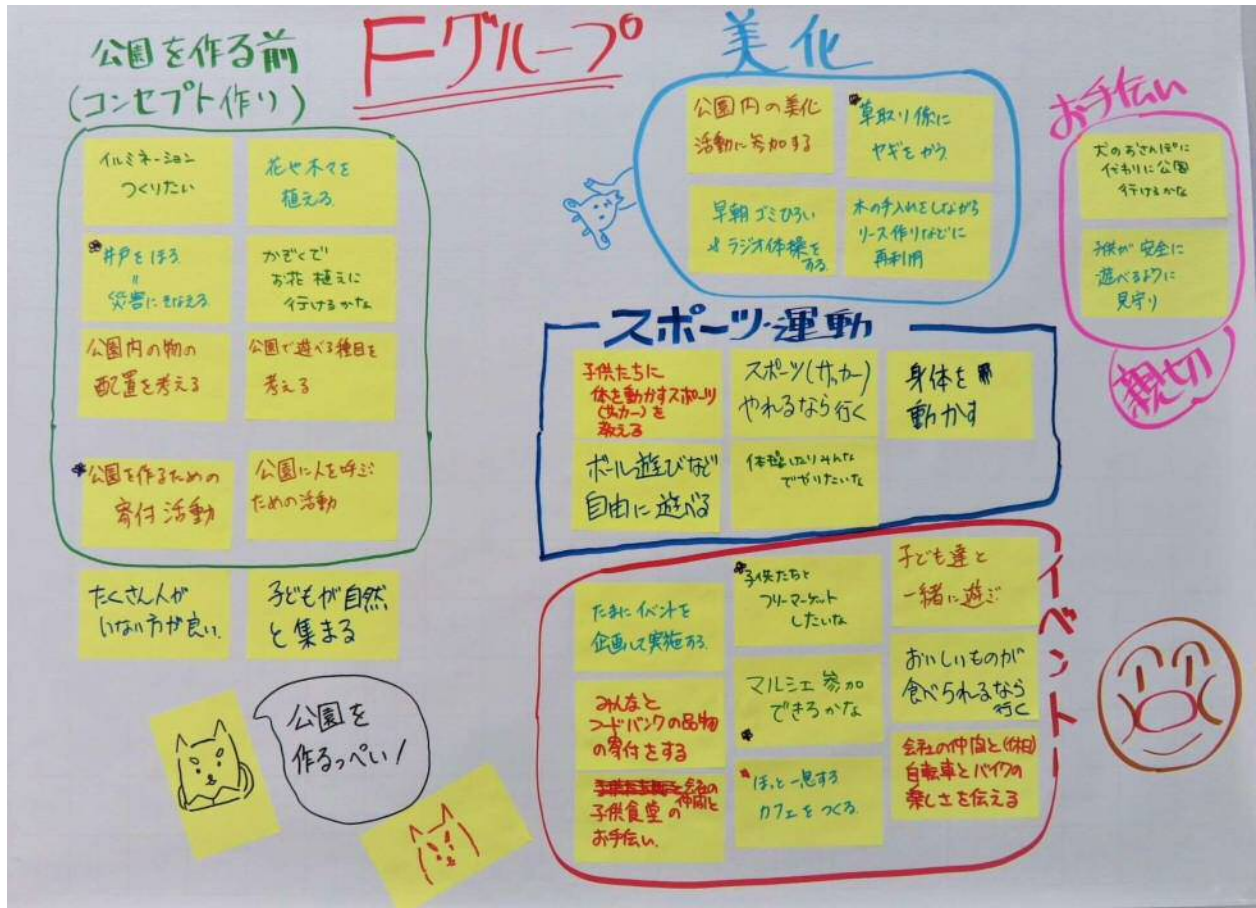 Fグループ
公園を作る前
(コンセプト作り)
イルミネーション
つくりたい
花や木々を
植える
井戸をほる
=
災害にそなえる
かぞくで
お花植えに
行けるかな
公園内の物の
配置を考える
公園で遊べる種目を
考える
公園を作るための
寄付活動
公園に人を呼ぶ
ための活動
たくさん人が
いない方が良い.
子どもが自然
と集まる
公園を
作るっぺい!
美化
公園内の美化
活動に参加する
草取り係に
ヤギをかう
早朝ゴミひろい
&ラジオ体操を
する.
木の手入れをしながら
リース作りなどに
再利用
お手伝い
犬のおさんぽに
代わりに公園
行けるかな
子供が安全に
遊べるように
見守り
親切
スポーツ・運動
子供たちに
体を動かすスポーツ
(サッカー)を
教える
スポーツ(サッカー)
やれるなら行く
身体を
動かす
ボール遊びなど
自由に遊べる
体操したりみんな
でやりたいな
イベント
たまにイベントを
企画して実施する.
子供たちと
フリーマーケット
したいな
子ども達と
一緒に遊ぶ
みんなと
フードバンクの品物
の寄付をする
マルシェ参加
できるかな
おいしいものが
食べられるなら
行く
会社の
仲間と
子供食堂の
お手伝い.
ほっと一息する
カフェをつくる.
会社の仲間と(休日)
自転車とバイクの
楽しさを伝える